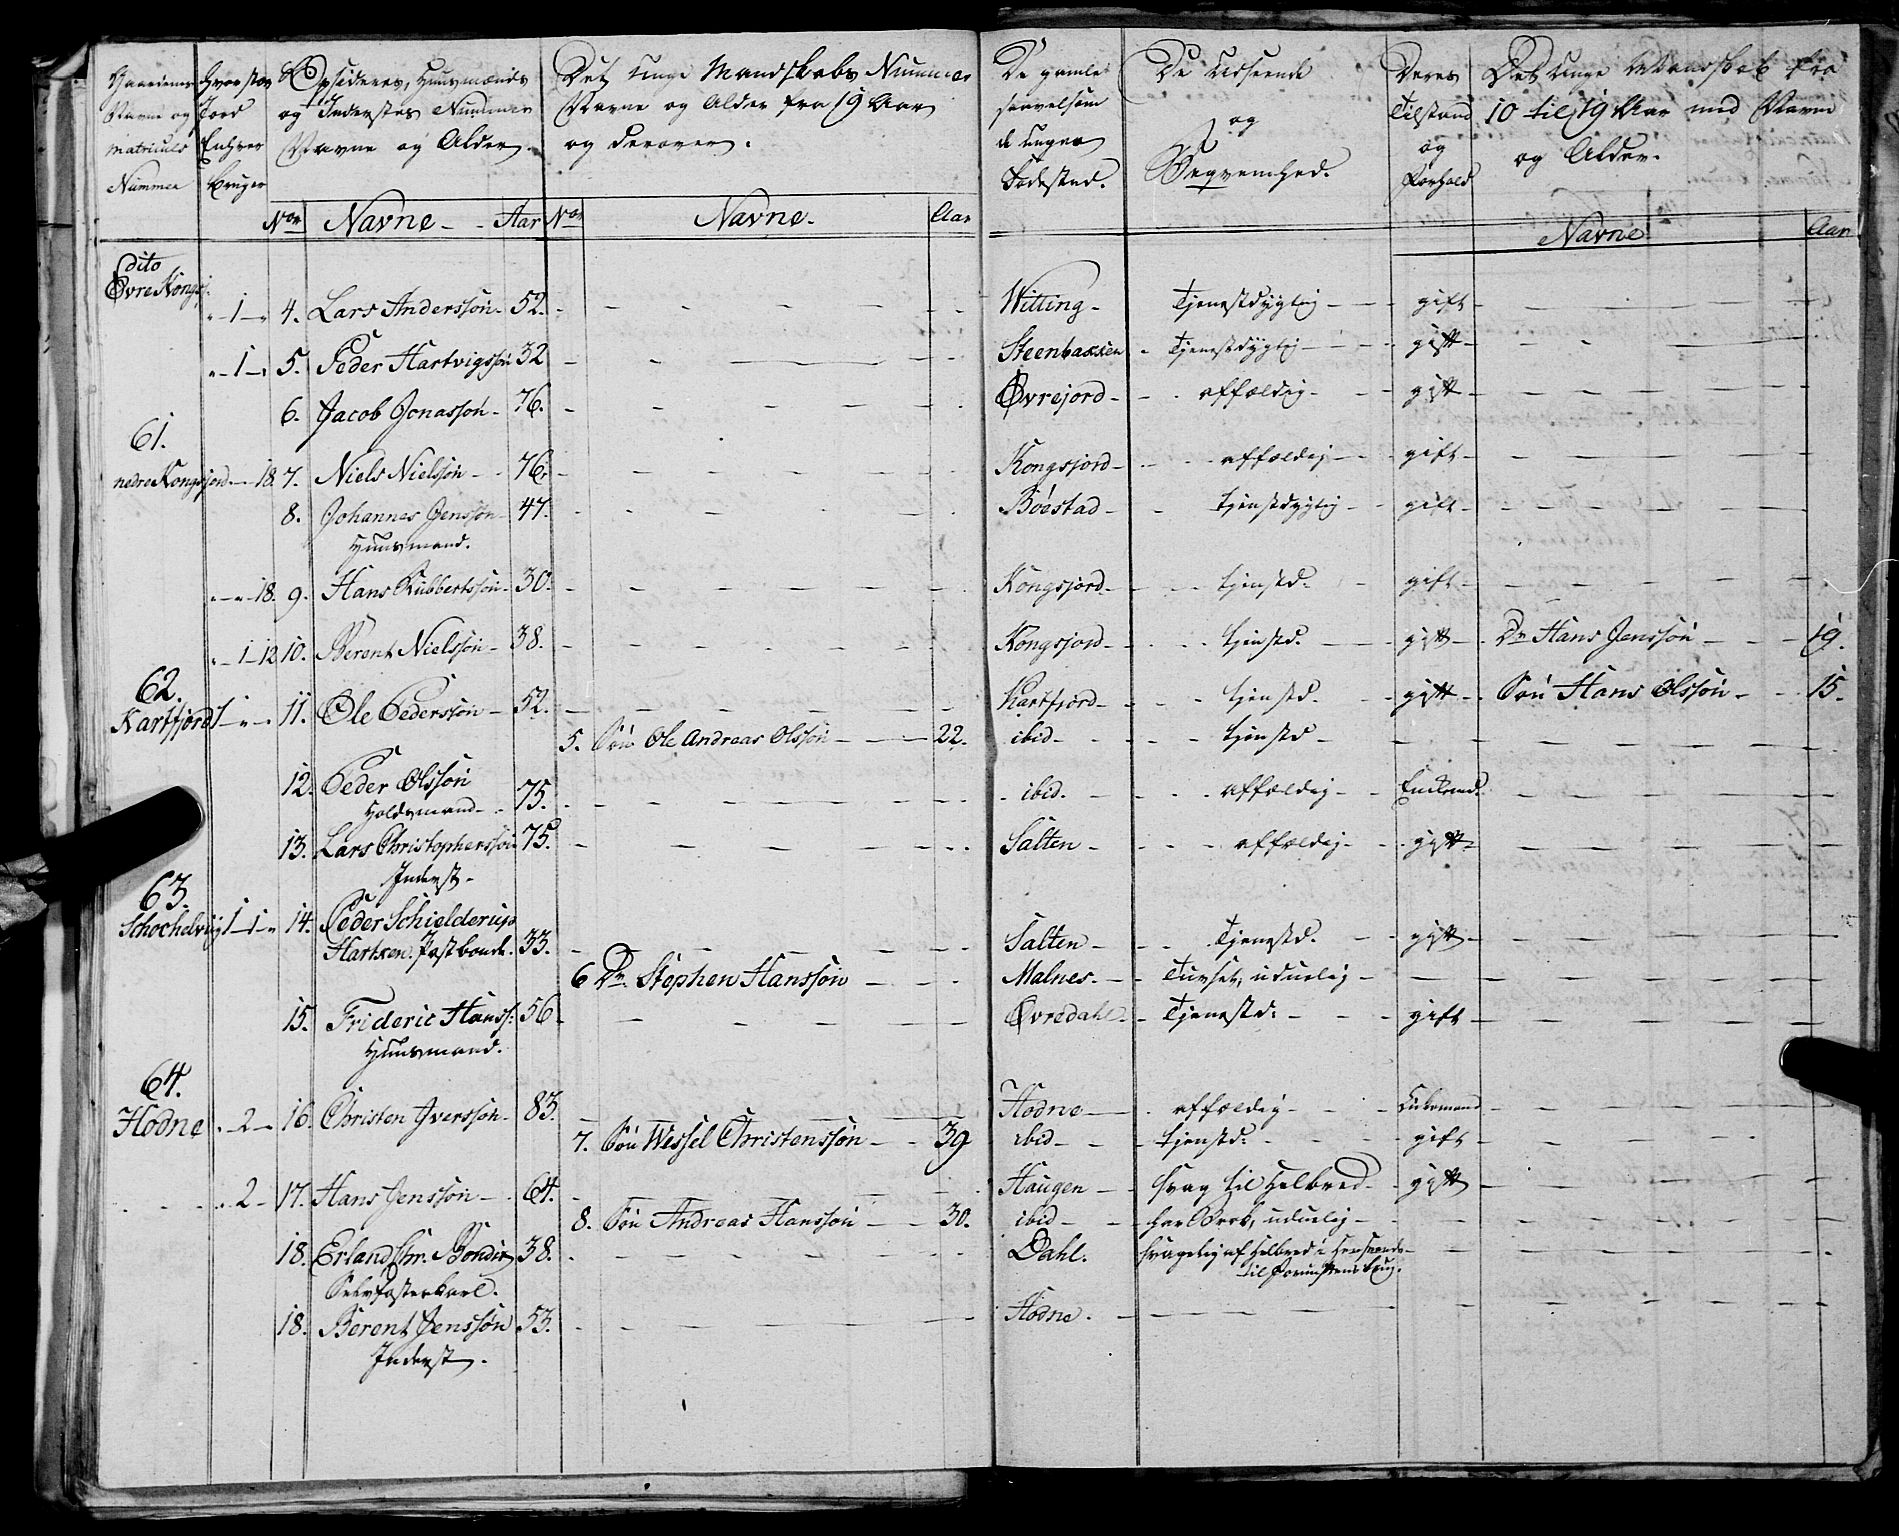 Gaardenes Navne og Matriculs Nummer
Hvor stor Jord Enhver Bruger
Opsidderes, Huusmænds og Inderstes Nummer Navne og Alder.
Det unge Mandskabs Nummer Navne og Alder fra 19 Aar og derover.
De gamle saavelsom de unges Fødested.
De Udseende og Beqvemhed.
Deres Tilstand og Forhold
Det unge Mandskab fra 10 til 19 Aar med Navne og Alder.
Nor Navne Aar Nor Navne. Aar Navne Aar
dito
Øvre Kongsj.
1 4. Lars Anderssøn 52. Witting Tjenestdygtig gift
1 5. Peder Hartvigssøn 32 Steenbaxsen Tjenestdygtig gift
6. Jacob Jonassøn 76. Øvrejord affældig gift
61.
nedre Kongsjord 18. 7. Niels Nielssøn 76. Kongsjord affældig gift
8. Johannes Jenssøn 47. Bøestad tjenstdygtig gift
Huusmand.
18. 9. Hans Rubbertssøn 30. Kongsjord tjenstd. gift
1 12 10. Berent Nielssøn 38. Kongsjord tjenstd. gift Dr. Hans Jenssøn 19.
62.
Kartfjord 1 11. Ole Pederssøn 52. Kartfjord tjenstd. gift Søn Hans Olssøn 15.
5. Søn Ole Andreas Olssøn 22. ibid tjenstd
12. Peder Olssøn
Holdsmand 75. ibid. affældig Enkemd.
13. Lars Christopherssøn 75. Salten affældig gift
Inderst
63.
Schochelviig 1 1 14. Peder Schielderup
Hartxen. Postbonde. 33. Salten Tjenestd. gift
6 Dr. Stephen Hanssøn Malnes Tuvset, uduelig
15. Frideric Hanss: 56 Øvredahl Tjenestd: gift
Huusmand.
64.
Hodne 2 16. Christen Iverssøn 83. Hodne affældig Enkemand
7. Søn Wessel Christenssøn 39 ibid tjenstd: gift
2 17. Hans Jenssøn 64. Haugen svag til Helbred gift
8. Søn Andreas Hanssøn 30. ibid har Brok, uduelig
18. Erland Chr. Bonder 38. Dahl. svagelig af Helbred i Henseende
til
Selvfosterkarl.
18. Berent Jenssøn 53. Hodne.
Inderst.